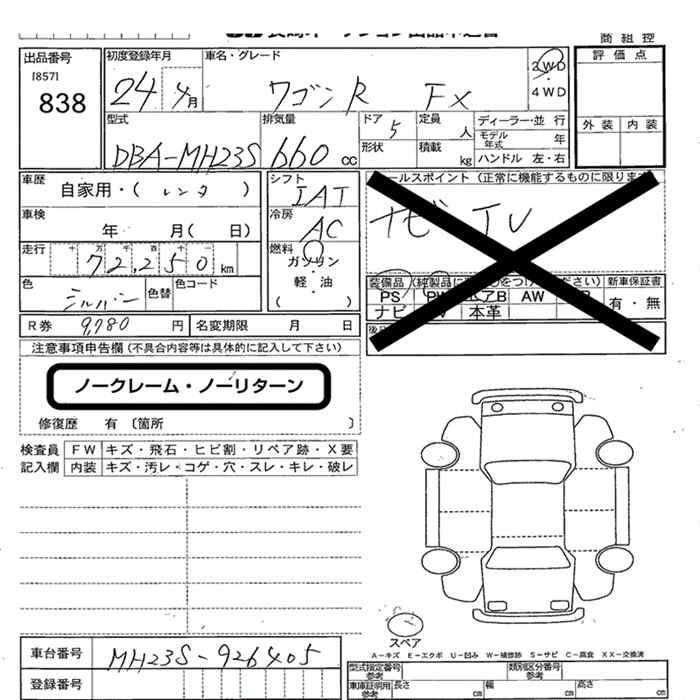 商 組 控
出品番号 初度登録年月 車名・グレード 2WD 評 価 点
[857] 24年 4月 ワゴンR FX 4WD
838
型式 排気量 ドア 5 定員 人 ディーラー・並 行 外 装 内 装
モデル年式 年
DBA-MH23S 660 cc 形状 積載 kg ハンドル 左・右
車歴 自家用・( レンタ ) シフト IAT セールスポイント (正常に機能するものに限ります)
ナビ TV
車検 年 月( 日) 冷房 AC
走行 十 万 千 百 十 一 72,250 km 燃料 ガソリン・軽 油 ( )
色 シルバー 色替 色コード 装備品 新車保証書
PS PW エアB AW 有・無
ナビ 本革
R券 9,780 円 名変期限 月 日
注意事項申告欄 (不具合内容等は具体的に記入して下さい)
ノークレーム・ノーリターン
修復歴 有 〔箇所 〕
検査員 FW キズ・飛石・ヒビ割・リペア跡・X要
記入欄 内装 キズ・汚レ・コゲ・穴・スレ・キレ・破レ
スペア
A−キズ E−エクボ U−凹み W−補修跡 S−サビ C−腐食 XX−交換済
車台番号 MH23S-926405 型式指定番号 類別区分番号
参考 参考
登録番号 車庫証明用 長さ cm 幅 cm 高さ cm
参考